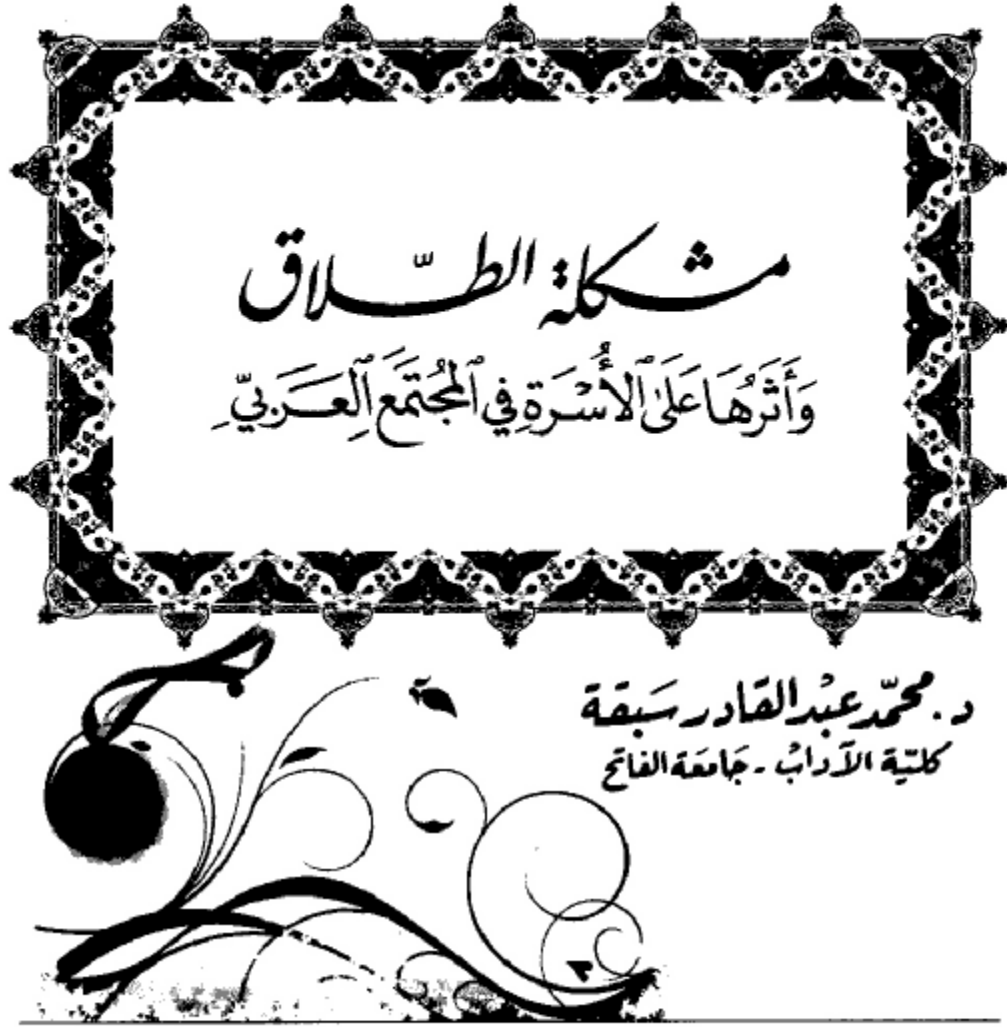 مشكلة الطّلاق
وَأَثَرُهَا عَلَىٰ ٱلأُسْرَةِ فِي ٱلمُجْتَمَعِ ٱلعَرَبيِّ
د. محمّد عبْد القادر سَبقة
كليّة الآدابْ - جَامعَة الفاتح